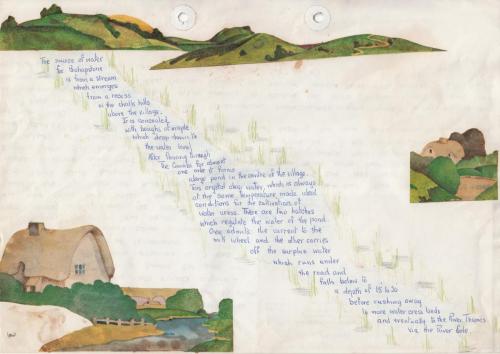 The source of water
for Bishopstone
is from a stream
which emerges
from a recess
in the chalk hills
above the village.
It is concealed
with boughs of maple
which drop down to
the water level
After flowing through
the Coombs for almost
one mile it forms
a large pond in the centre of the village.
This crystal clear water, which is always
at the same temperature, made ideal
conditions for the cultivation of
water cress. There are two hatches
which regulate the water of the pond.
One admits the current to the
mill wheel and the other carries
off the surplus water
which runs under
the road and
falls below to
a depth of 15 to 20
before rushing away
to more water cress beds
and eventually to the River Thames
via the River Cole.